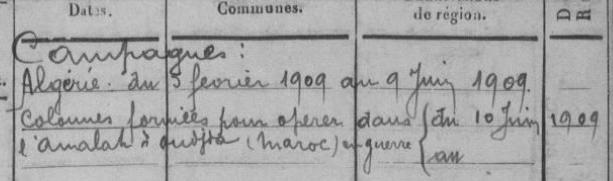 Dates.
Communes.
de région.
D
R
Campagnes :
Algérie. du 5 fevrier 1909 au 9 Juin 1909.
Colonnes formées pour opérer dans { du 10 Juin 1909
l'amalah d'oudjda (Maroc) en guerre { au